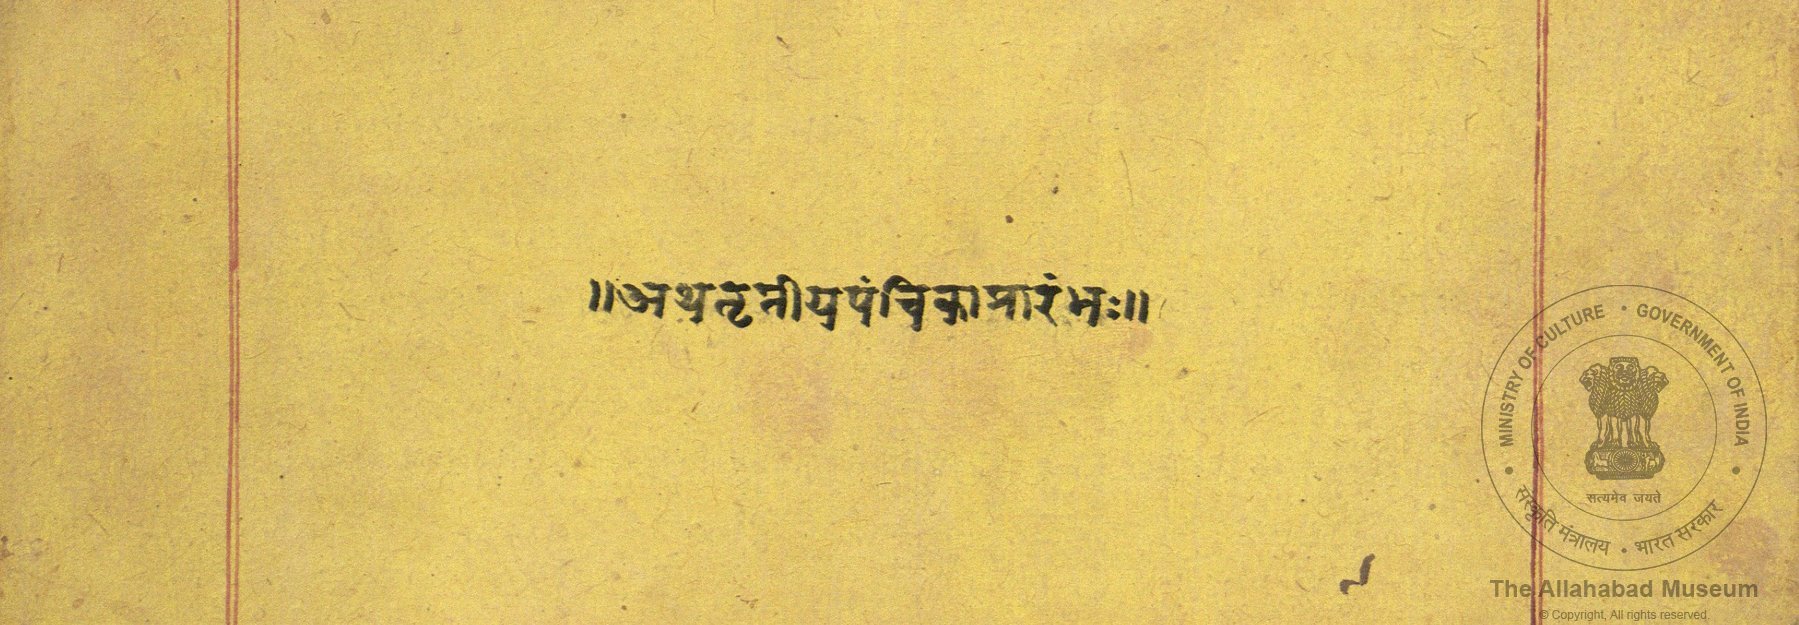 ॥अथतृतीयपंचिकाप्रारंभः॥
MINISTRY OF CULTURE • GOVERNMENT OF INDIA
सत्यमेव जयते
संस्कृति मंत्रालय • भारत सरकार
The Allahabad Museum
© Copyright, All rights reserved.